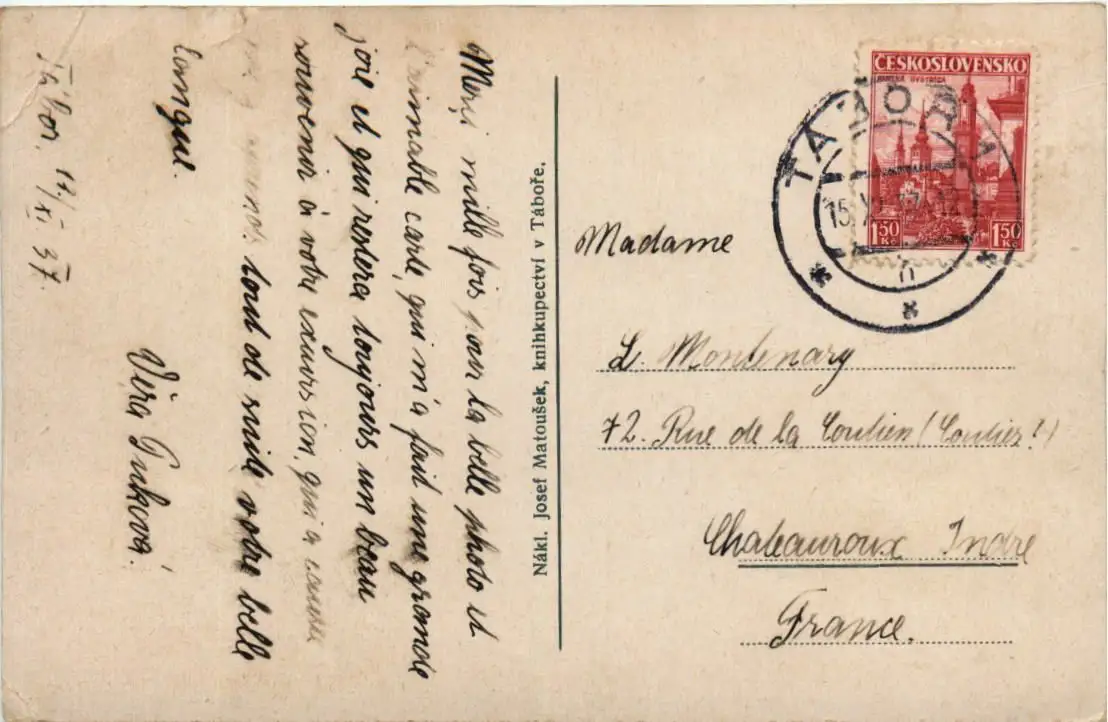 Tábor. 17./XI 37
Merci mille fois pour la belle photo et
l'aimable carte, qui m'a fait une grande
joie et qui restera toujours un beau
souvenir à votre excursion, qui a
tout de suite votre belle
langue.
Věra
Nákl. Josef Matoušek, knihkupectví v Táboře.
ČESKOSLOVENSKO
1·50 Kč 1·50 Kč
TÁBOR
15 XI 37
Madame
L. Montenary
72. Rue de la Coulien (Coulies?)
Chateauroux Indre
France.